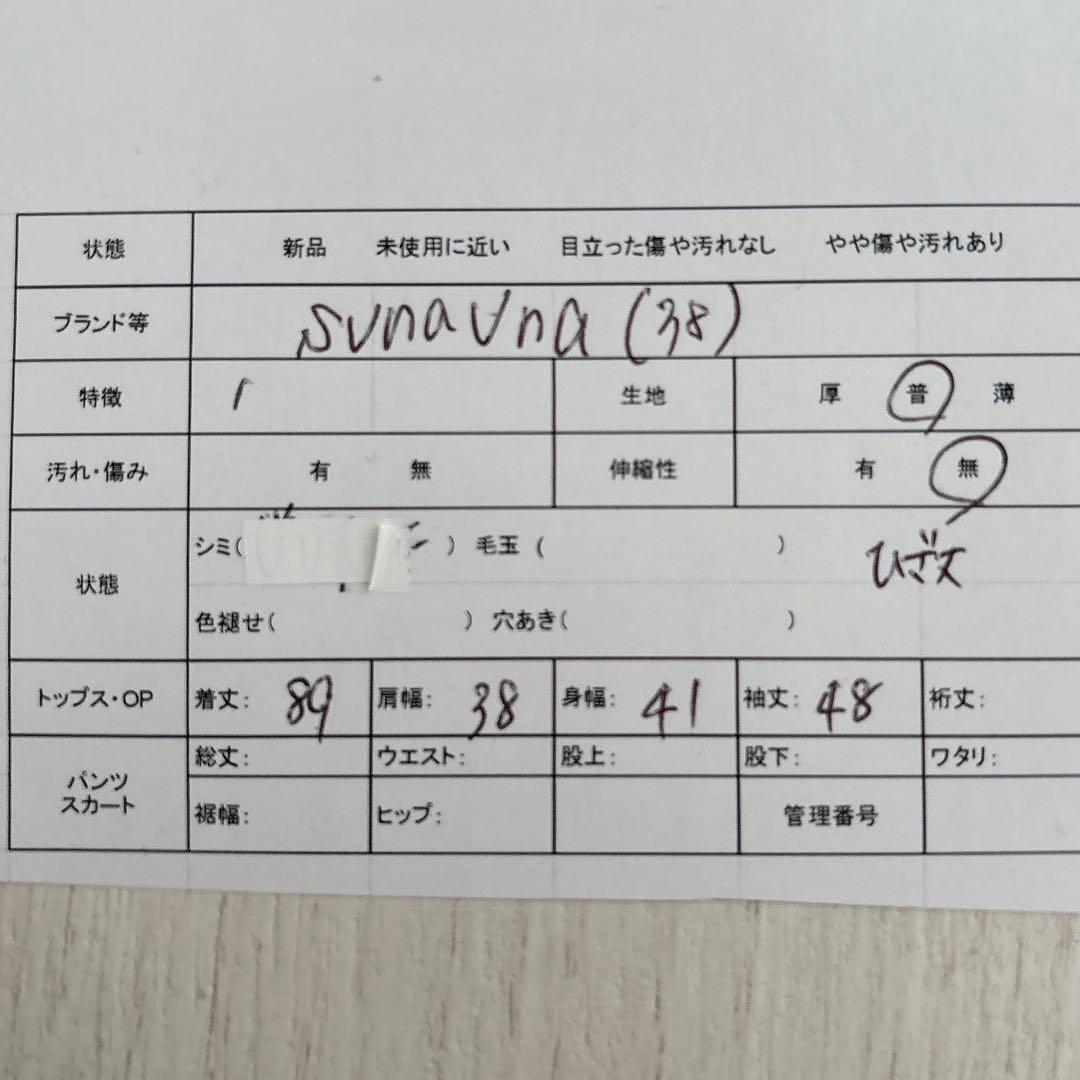 状態 新品 未使用に近い 目立った傷や汚れなし やや傷や汚れあり
ブランド等 sunauna (38)
特徴 生地 厚 普 薄
汚れ・傷み 有 無 伸縮性 有 無
状態 シミ( ) 毛玉 ( ) ひざ丈
色褪せ( ) 穴あき( )
トップス・OP 着丈: 89 肩幅: 38 身幅: 41 袖丈: 48 裄丈:
パンツ スカート 総丈: ウエスト: 股上: 股下: ワタリ:
裾幅: ヒップ: 管理番号